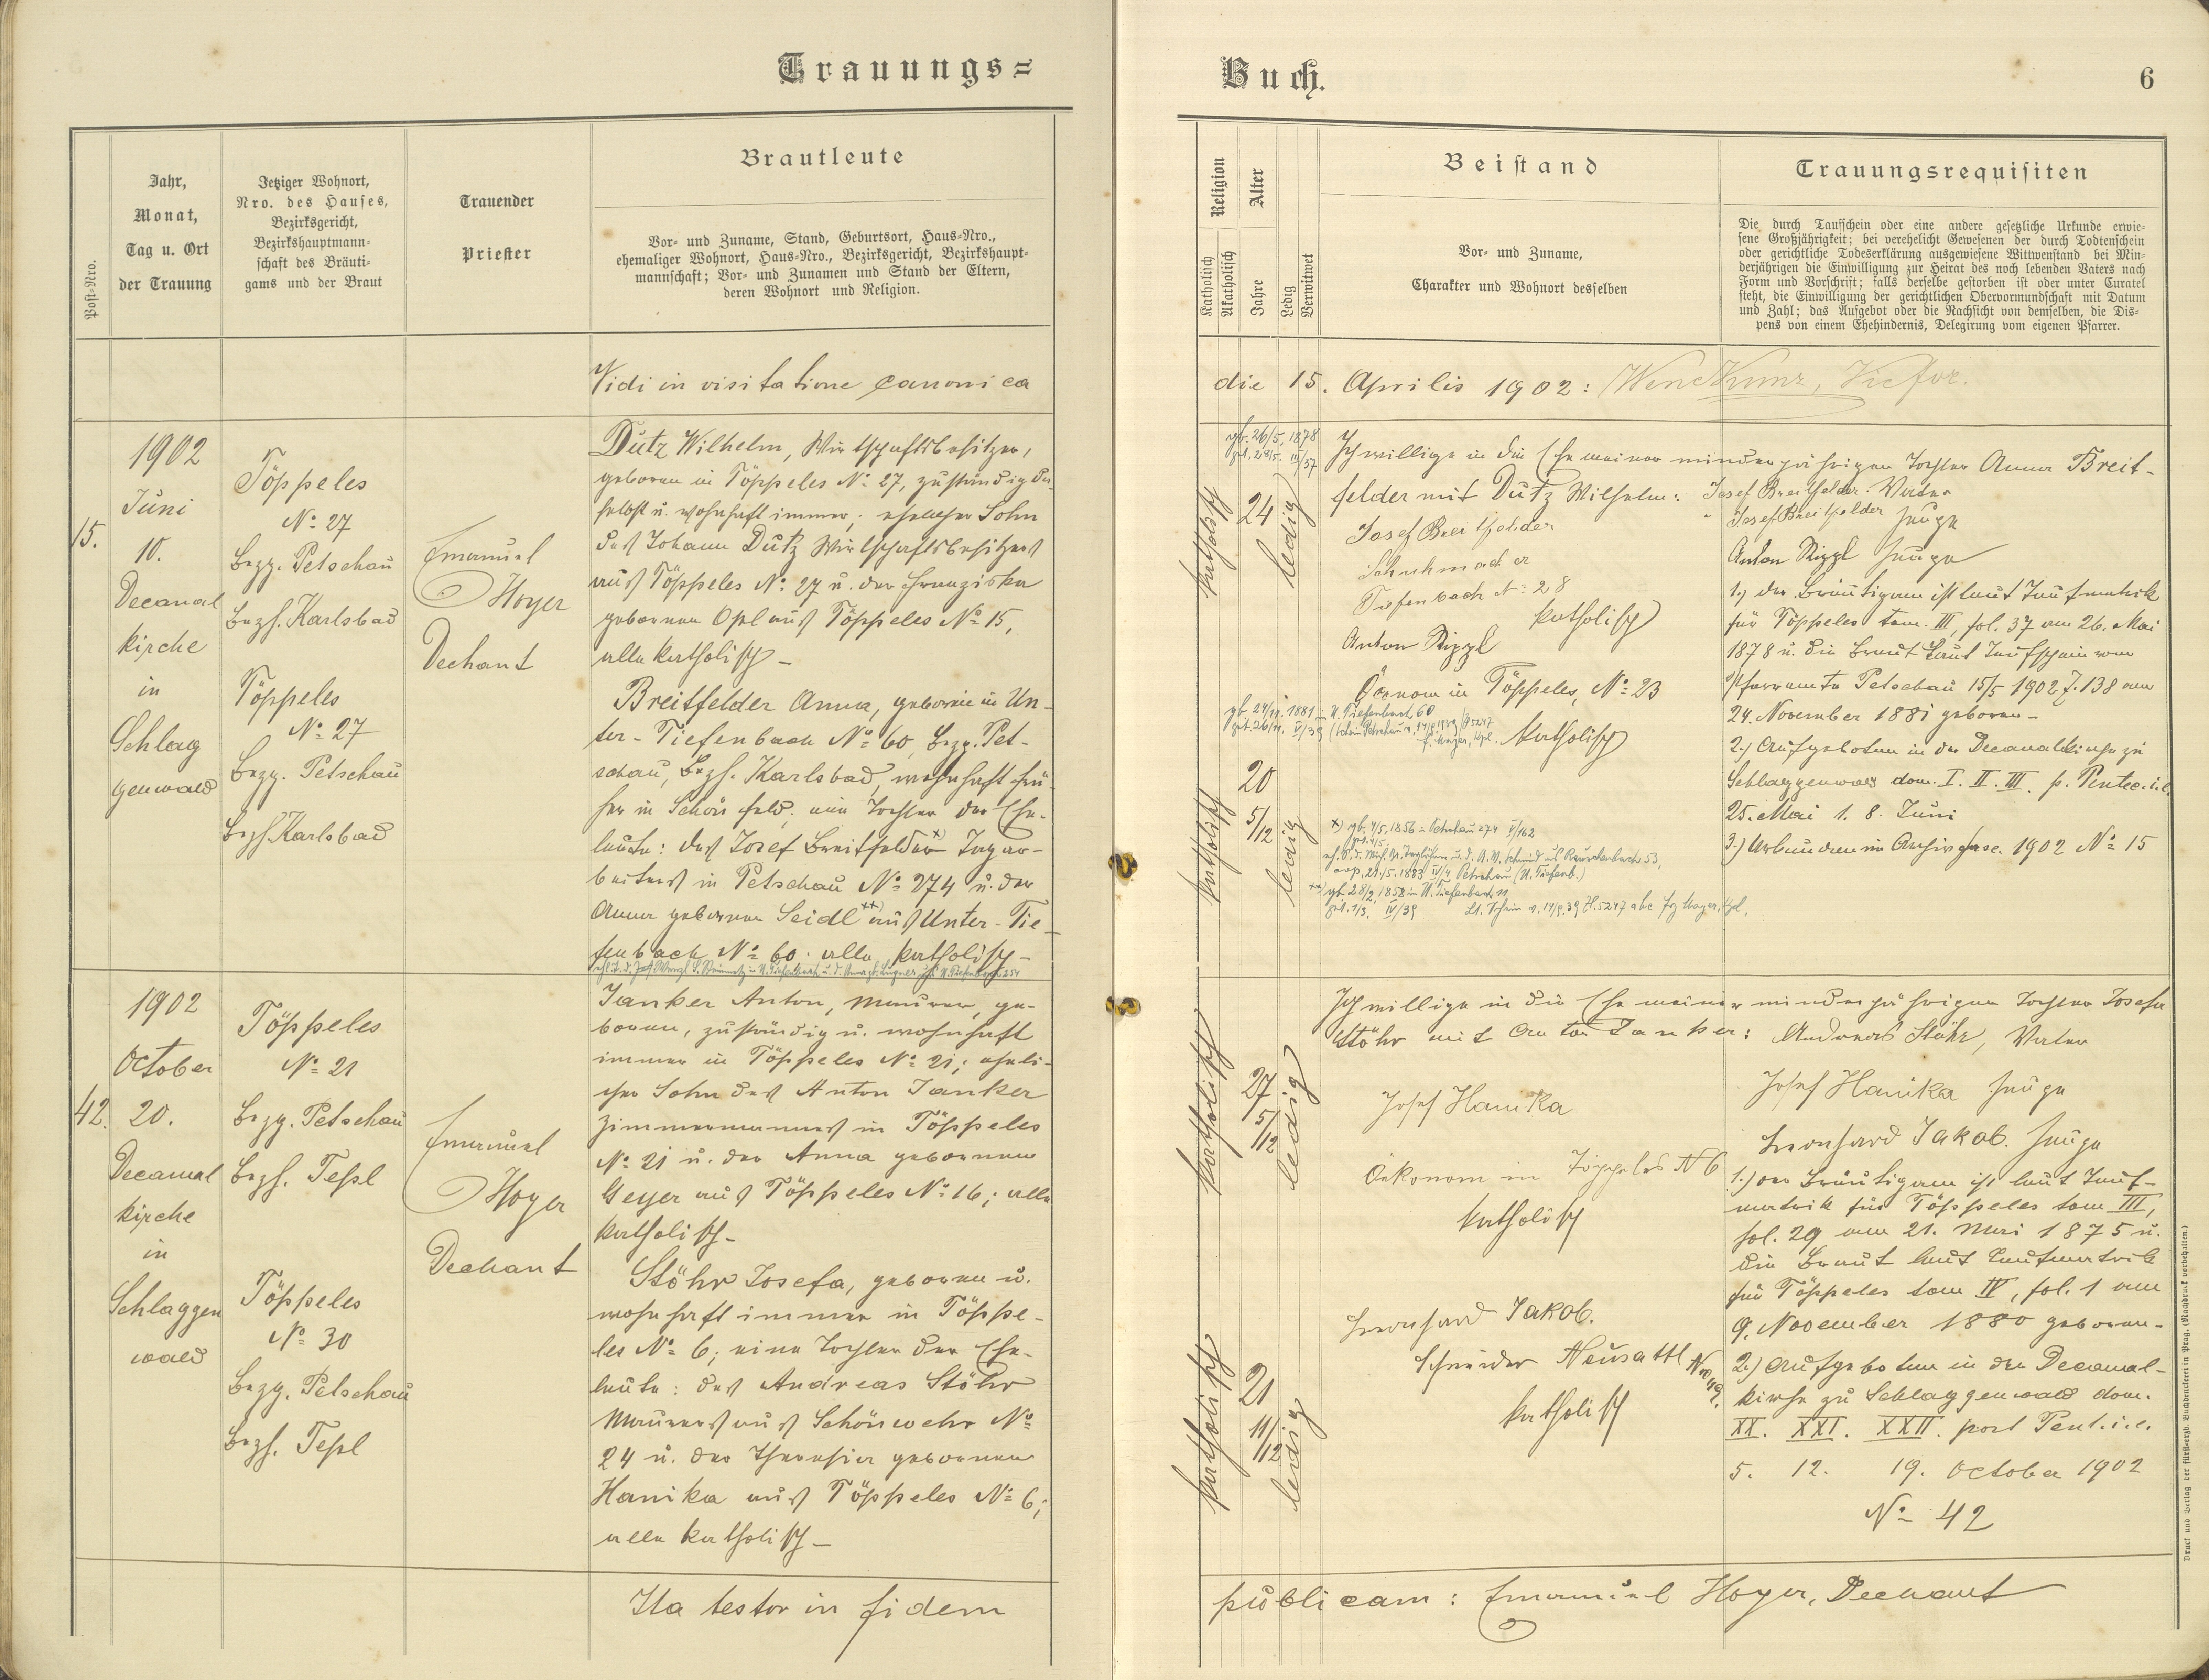 Trauungs=
Jahr,
Monat,
Tag u. Ort
der Trauung
Post-Nro.
Jetziger Wohnort,
Nro. des Hauses,
Bezirksgericht,
Bezirkshauptmann-
schaft des Bräuti-
gams und der Braut
Trauender
Priester
Brautleute
Vor- und Zuname, Stand, Geburtsort, Haus-Nro.,
ehemaliger Wohnort, Haus-Nro., Bezirksgericht, Bezirkshaupt-
mannschaft; Vor- und Zunamen und Stand der Eltern,
deren Wohnort und Religion.
Vidi in visitatione canonica
15.
1902
Juni
10.
Decanal
kirche
in
Schlag
genwald
Töppeles
No 27
Bezg. Petschau
Bezh. Karlsbad
Töppeles
No 27
Bezg. Petschau
Bezh. Karlsbad
Emanuel
Hoyer
Dechant
Dutz Wilhelm, Wirtschaftsbesitzer,
geboren in Töppeles No 27, zuständig da-
selbst u. wohnhaft immer, ehelicher Sohn
des Johann Dutz Wirtschaftsbesitzers
aus Töppeles No 27 u. der Franziska
gebornen Opl aus Töppeles No 15,
alle katholisch –
Breitfelder Anna, geboren in Un-
ter-Tiefenbach No 60, Bezg. Pet-
schau, Bezh. Karlsbad, wohnhaft frü-
her in Schönfeld, eine Tochter der Ehe-
leute: des Josef Breitfelder x) Tagar-
beiters in Petschau No 274 u. der
Anna gebornen Seidl xx) aus Unter-Tie-
fenbach No 60. alle katholisch –
42.
1902
October
20.
Decanal
kirche
in
Schlaggen
wald
Töppeles
No 21
Bezg. Petschau
Bezh. Tepl
Töppeles
No 30
Bezg. Petschau
Bezh. Tepl
Emanuel
Hoyer
Dechant
Janker Anton, Maurer, ge-
boren, zuständig u. wohnhaft
immer in Töppeles No 21; eheli-
cher Sohn des Anton Janker
Zimmermannes in Töppeles
No 21 u. der Anna gebornen
Geyer aus Töppeles No 16; alle
katholisch –
Stöhr Josefa, geboren u.
wohnhaft immer in Töppe-
les No 6; eine Tochter der Ehe-
leute: des Andreas Stöhr
Maurers aus Schönwehr No
24 u. der Theresia gebornen
Hanika aus Töppeles No 6;
alle katholisch –
Ita testor in fidem
Buch.
6
Religion
Katholisch
Akatholisch
Alter
Jahre
Ledig
Verwitwet
Beistand
Vor- und Zuname,
Charakter und Wohnort desselben
Trauungsrequisiten
Die durch Taufschein oder eine andere gesetzliche Urkunde erwie-
sene Großjährigkeit; bei verehelicht Gewesenen der durch Todtenschein
oder gerichtliche Todeserklärung ausgewiesene Wittwenstand bei Min-
derjährigen die Einwilligung zur Heirat des noch lebenden Vaters nach
Form und Vorschrift; falls derselbe gestorben ist oder unter Curatel
steht, die Einwilligung der gerichtlichen Obervormundschaft mit Datum
und Zahl; das Aufgebot oder die Nachsicht von demselben, die Dis-
pens von einem Ehehindernis, Delegirung vom eigenen Pfarrer.
die 15. Aprilis 1902:
gb. 26/5. 1878
katholisch
24
ledig
Ich willige in die Ehe meiner minderjährigen Tochter Anna Breit-
felder mit Dutz Wilhelm: Josef Breitfelder Vater
Josef Breitfelder
Schuhmacher
Tiefenbach No 28
katholisch
Anton Rizzl
Öconom in Töppeles, No 23
katholisch
gb. 24/11. 1881 in U. Tiefenbach 60
katholisch
20
5/12
ledig
Josef Breitfelder Zeuge
Anton Rizzl Zeuge
1.) der Bräutigam ist laut Taufmatrik
für Töppeles tom. III, fol. 37 am 26. Mai
1878 u. die Braut laut Taufschein vom
Pfarramte Petschau 15/5 1902 Z. 138 am
24. November 1881 geboren –
2.) Aufgeboten in der Decanalkirche zu
Schlaggenwald dom. I. II. III. p. Pentec. i.e.
25. Mai 1. 8. Juni
3.) Urkunden im Archiv fasc. 1902 No 15
katholisch
27
5/12
ledig
Ich willige in die Ehe meiner minderjährigen Tochter Josefa
Stöhr mit Anton Janker: Andreas Stöhr, Vater
Josef Hanika
Oekonom in Töppeles N 6
katholisch
Leonhard Jakob.
Schneider Neusattl
katholisch
katholisch
21
11/12
ledig
Josef Hanika Zeuge
Leonhard Jakob. Zeuge
1.) der Bräutigam ist laut Tauf-
matrik für Töppeles tom III,
fol. 29 am 21. Mai 1875 u.
die Braut laut Taufmatrik
für Töppeles tom IV, fol. 1 am
9. November 1880 geboren –
2.) Aufgeboten in der Decanal-
kirche zu Schlaggenwald dom.
XX. XXI. XXII. post Pent. i.e.
5. 12. 19. October 1902
No 42
publicam: Emanuel Hoyer, Dechant
Druck und Verlag der fürsterzb. Buchdruckerei in Prag. (Nachdruck vorbehalten.)